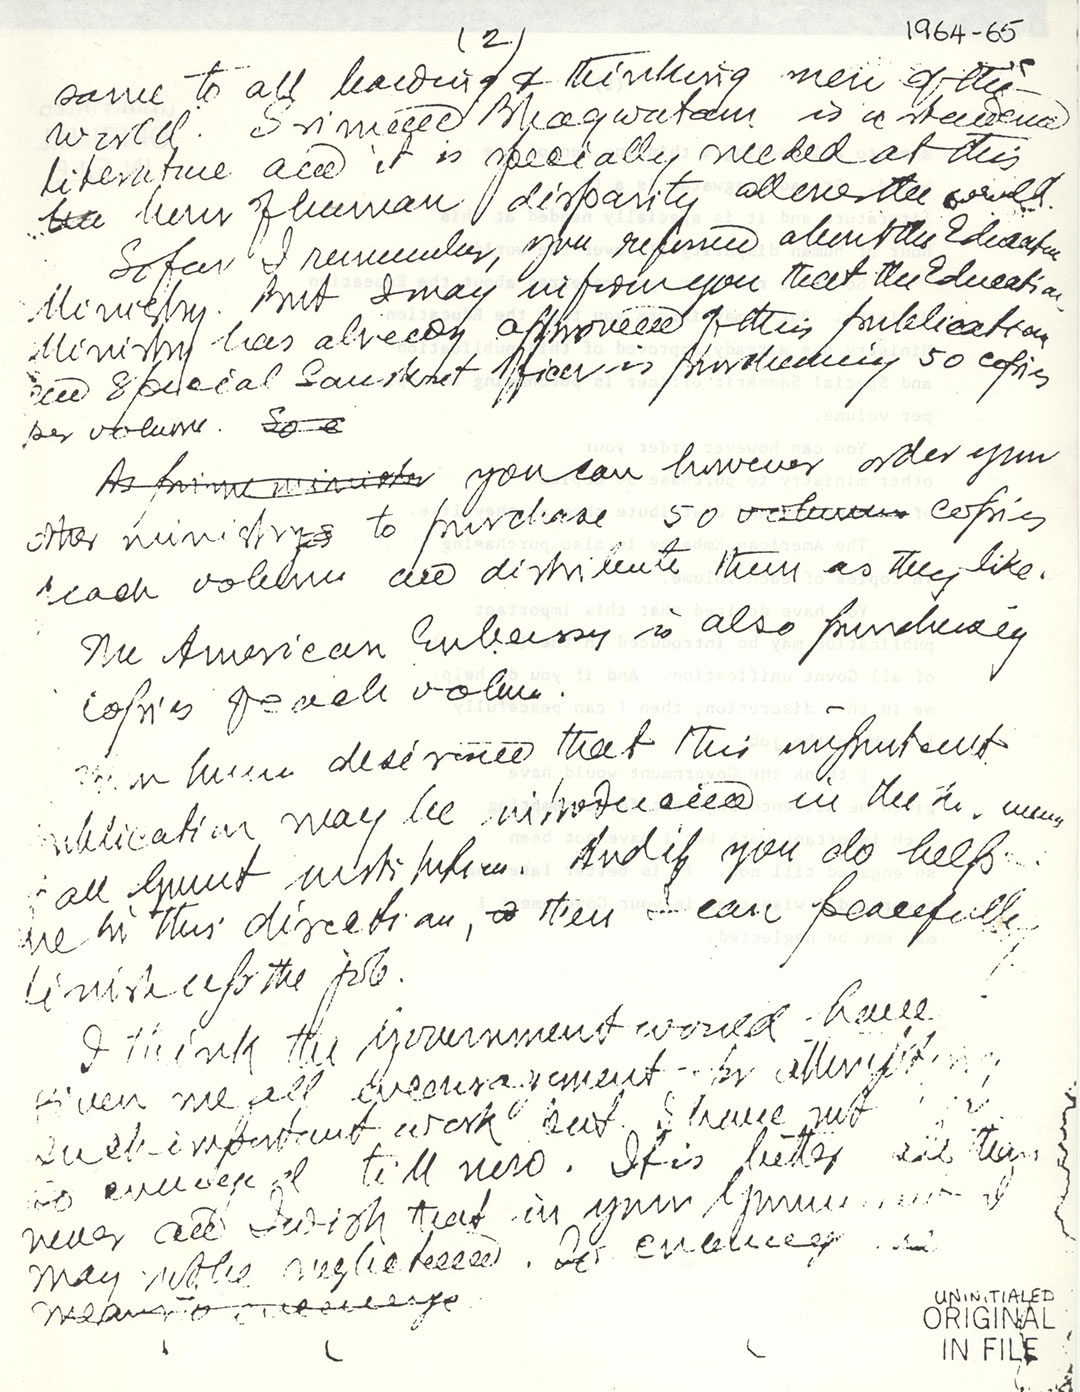 (2)
1964-65
same to all leading & thinking men of the
world. Srimad Bhagwatam is a standard
literature and it is specially needed at this
hour of human disparity all over the world.
So far I remember, you referred about the Education
Ministry. But I may inform you that the Education
Ministry has already approved of this publication
and Special Sanskrit officer is purchasing 50 copies
per volume. So
As prime minister you can however order your
other ministry to purchase 50 volumes copies
each volume and distribute them as they like.
The American Embassy is also purchasing
copies of each volume.
desired that this important
publication may be introduced in the
all Govnt institution. And if you do help
me in this direction, then I can peacefully
finish up the job.
I think the Government would have
given me all encouragement for attempting
such important work but I have not
so till now. It is better late than
never and I wish that in your Govnt I
may not be neglected.
UNINITIALED
ORIGINAL
IN FILE